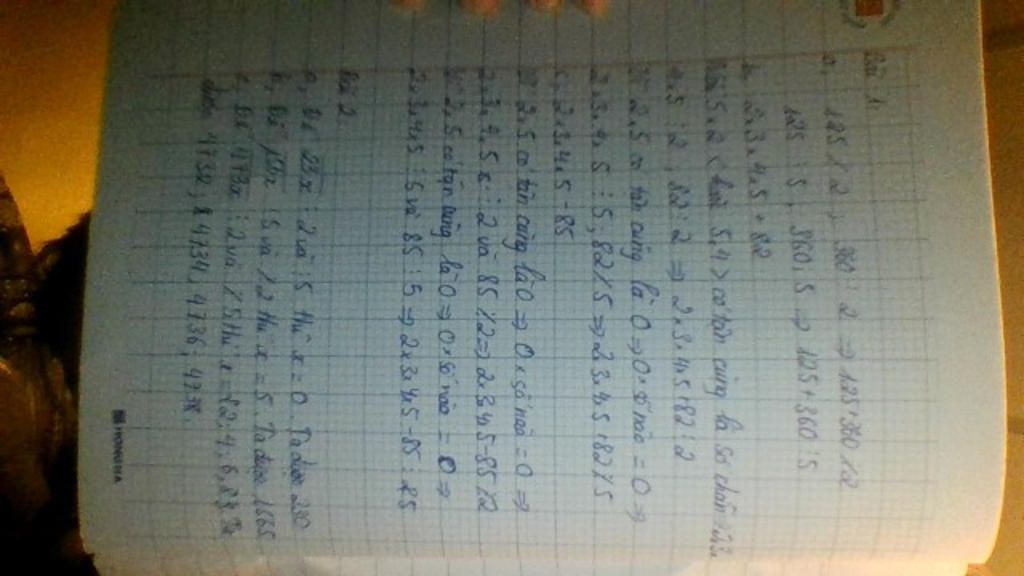 Bài 1.
a, 125 ⋮̸ 2, 360 ⋮ 2 ⇒ 125 + 360 ⋮̸ 2
125 ⋮ 5, 360 ⋮ 5 ⇒ 125 + 360 ⋮ 5
b, 2.3.4.5 + 82
5.2 < 5.4 > có tận cùng là số chẵn
4.5 ⋮ 2, 82 ⋮ 2 ⇒ 2 x 3 x 4 x 5 + 82 ⋮ 2
Vì 2.5 có tận cùng là 0 ⇒ 0 x số nào = 0 ⇒
2.3.4.5 ⋮ 5, 82 ⋮̸ 5 ⇒ 2.3.4.5 + 82 ⋮̸ 5
c, 2.3.4.5 - 85
Vì 2.5 có tận cùng là 0 ⇒ 0 x số nào = 0 ⇒
2.3.4.5 ⋮ 2 và 85 ⋮̸ 2 ⇒ 2.3.4.5 - 85 ⋮̸ 2
Vì 2.5 có tận cùng là 0 ⇒ 0 x số nào = 0 ⇒
2.3.4.5 ⋮ 5 và 85 ⋮ 5 ⇒ 2 x 3 x 4.5 - 85 ⋮ 5
Bài 2.
a, Để 23x ⋮ 2 và ⋮ 5 thì x = 0. Ta được 230
b, Để ⋮ 5 và ⋮̸ 2 thì x = 5. Ta được 1565
c, Để 473x ⋮ 2 và ⋮̸ 5 thì x = 2; 4; 6, 8 Ta
được 4732, 4734, 4736; 4738.